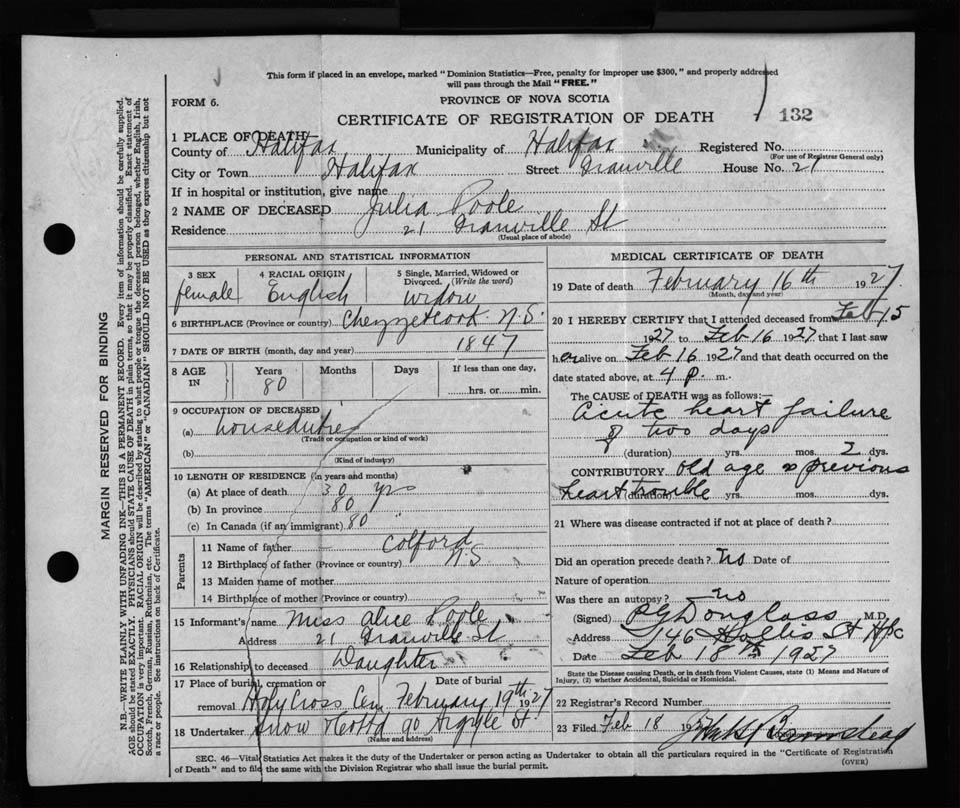 This form if placed in an envelope, marked "Dominion Statistics—Free, penalty for improper use $300," and properly addressed
will pass through the Mail "FREE."
FORM 6.
PROVINCE OF NOVA SCOTIA
CERTIFICATE OF REGISTRATION OF DEATH
132
1 PLACE OF DEATH—
County of Halifax Municipality of Halifax Registered No.
(For use of Registrar General only)
City or Town Halifax Street Granville House No. 21
If in hospital or institution, give name
2 NAME OF DECEASED Julia Poole
Residence 21 Granville St
(Usual place of abode)
PERSONAL AND STATISTICAL INFORMATION
3 SEX female
4 RACIAL ORIGIN English
5 Single, Married, Widowed or Divorced. (Write the word) widow
6 BIRTHPLACE (Province or country) Chezzetcook N.S.
7 DATE OF BIRTH (month, day and year) 1847
8 AGE IN Years 80 Months Days If less than one day, hrs. or min.
9 OCCUPATION OF DECEASED
(a) houseduties
(Trade or occupation or kind of work)
(b)
(Kind of industry)
10 LENGTH OF RESIDENCE (in years and months)
(a) At place of death 30 yrs
(b) In province 80 "
(c) In Canada (if an immigrant) 80 "
Parents
11 Name of father — Colford
12 Birthplace of father (Province or country) N.S
13 Maiden name of mother
14 Birthplace of mother (Province or country)
15 Informant's name Miss Alice Poole
Address 21 Granville St
16 Relationship to deceased Daughter
17 Place of burial, cremation or removal Date of burial
Holy Cross Cem February 19th 1927
18 Undertaker Snow & Co Ltd 90 Argyle St
(Name and address)
MEDICAL CERTIFICATE OF DEATH
19 Date of death February 16th 1927
(Month, day and year)
20 I HEREBY CERTIFY that I attended deceased from Feb 15
1927 to Feb 16 1927 that I last saw
her alive on Feb 16 1927 and that death occurred on the
date stated above, at 4 p. m.
The CAUSE of DEATH was as follows:—
Acute heart failure
of two days
(duration) yrs. mos. 2 days
CONTRIBUTORY old age & previous
heart trouble (duration) yrs. mos. dys.
21 Where was disease contracted if not at place of death?
Did an operation precede death? no Date of
Nature of operation
Was there an autopsy? no
(Signed) Douglass M.D.
Address 146 Hollis St Hfx
Date Feb 18th 1927
State the Disease causing Death, or in death from Violent Causes, state (1) Means and Nature of
Injury, (2) whether Accidental, Suicidal or Homicidal.
22 Registrar's Record Number
23 Filed Feb 18 1927
SEC. 46—Vital Statistics Act makes it the duty of the Undertaker or person acting as Undertaker to obtain all the particulars required in the "Certificate of Registration
of Death" and to file the same with the Division Registrar who shall issue the burial permit.
(OVER)
MARGIN RESERVED FOR BINDING
N.B.—WRITE PLAINLY WITH UNFADING INK—THIS IS A PERMANENT RECORD. Every item of information should be carefully supplied.
AGE should be stated EXACTLY. PHYSICIANS should STATE CAUSE OF DEATH in plain terms, so that it may be properly classified. Exact statement of
OCCUPATION is very important. RACIAL ORIGIN will be described by stating to what people or tongue the deceased person belonged, whether English, Irish,
Scotch, French, German, Russian, Ruthenian, etc. The terms "AMERICAN" or "CANADIAN" SHOULD NOT BE USED as they express citizenship but not
a race or people. See instructions on back of Certificate.